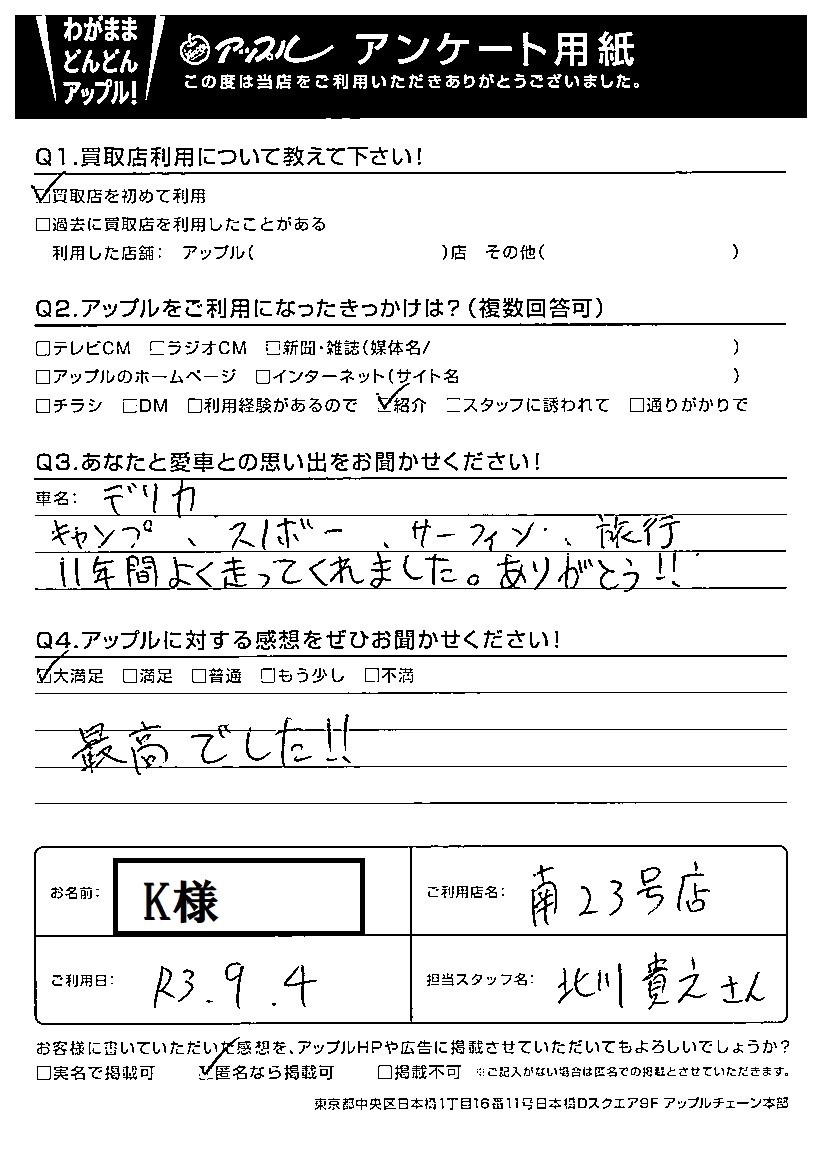 わがまま
どんどん
アップル!
アップル アンケート用紙
この度は当店をご利用いただきありがとうございました。
Q1.買取店利用について教えて下さい!
☑買取店を初めて利用
□過去に買取店を利用したことがある
利用した店舗: アップル( )店 その他( )
Q2.アップルをご利用になったきっかけは?(複数回答可)
□テレビCM □ラジオCM □新聞・雑誌(媒体名/ )
□アップルのホームページ □インターネット(サイト名 )
□チラシ □DM □利用経験があるので ☑紹介 □スタッフに誘われて □通りがかりで
Q3.あなたと愛車との思い出をお聞かせください!
車名: デリカ
キャンプ、スノボー、サーフィン、旅行
11年間よく走ってくれました。ありがとう!!
Q4.アップルに対する感想をぜひお聞かせください!
☑大満足 □満足 □普通 □もう少し □不満
最高でした!!
お名前: K様 ご利用店名: 南23号店
ご利用日: R3.9.4 担当スタッフ名: 北川貴えさん
お客様に書いていただいた感想を、アップルHPや広告に掲載させていただいてもよろしいでしょうか?
□実名で掲載可 ☑匿名なら掲載可 □掲載不可 ※ご記入がない場合は匿名での掲載とさせていただきます。
東京都中央区日本橋1丁目16番11号日本橋Dスクエア9F アップルチェーン本部